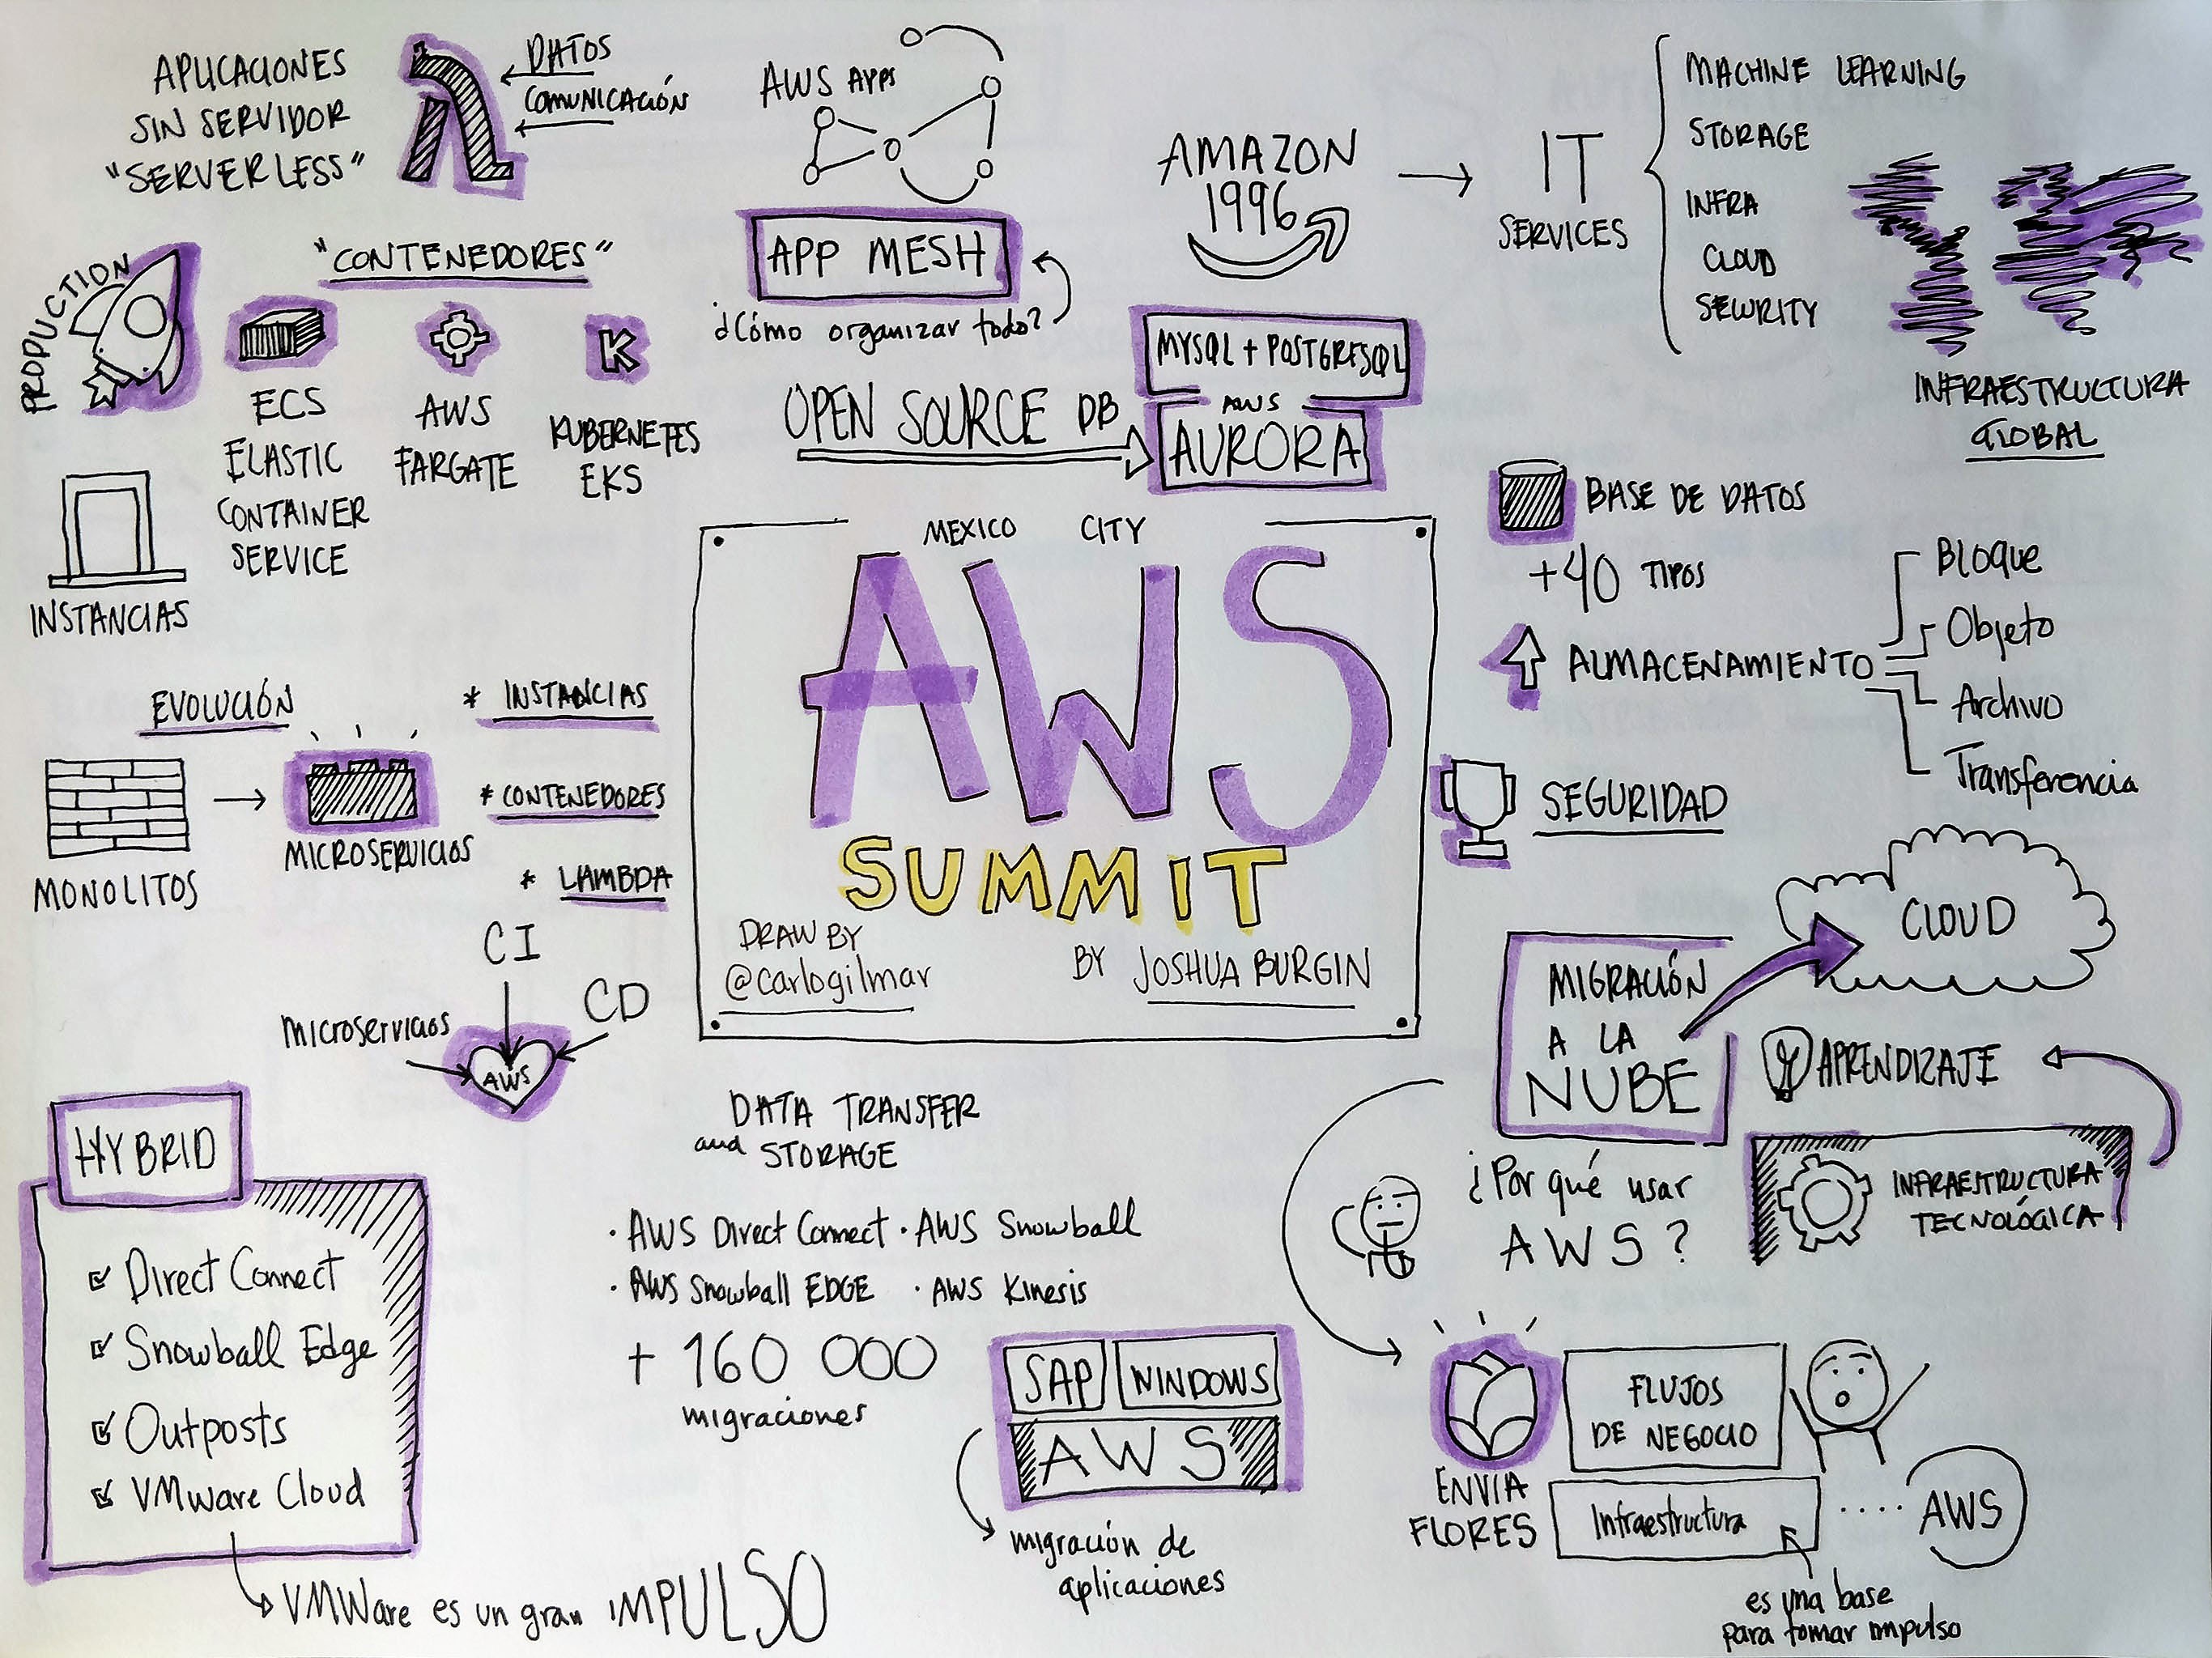 APLICACIONES
SIN SERVIDOR
"SERVERLESS"
DATOS
COMUNICACIÓN
AWS APPS
APP MESH
¿Cómo organizar todo?
AMAZON
1996
IT
SERVICES
MACHINE LEARNING
STORAGE
INFRA
CLOUD
SECURITY
INFRAESTRUCTURA
GLOBAL
PRODUCTION
"CONTENEDORES"
ECS
ELASTIC
CONTAINER
SERVICE
AWS
FARGATE
K
KUBERNETES
EKS
INSTANCIAS
OPEN SOURCE DB
MYSQL + POSTGRESQL
AWS
AURORA
BASE DE DATOS
+40 TIPOS
ALMACENAMIENTO
Bloque
Objeto
Archivo
Transferencia
SEGURIDAD
EVOLUCIÓN
MONOLITOS
MICROSERVICIOS
* INSTANCIAS
* CONTENEDORES
* LAMBDA
MEXICO CITY
AWS
SUMMIT
DRAW BY
@carlogilmar
BY JOSHUA BURGIN
CI
CD
Microservicios
AWS
MIGRACIÓN
A LA
NUBE
CLOUD
APRENDIZAJE
INFRAESTRUCTURA
TECNOLÓGICA
¿Por qué usar
AWS?
HYBRID
Direct Connect
Snowball Edge
Outposts
VMware Cloud
VMWare es un gran IMPULSO
DATA TRANSFER
and STORAGE
· AWS Direct Connect · AWS Snowball
· AWS Snowball EDGE · AWS Kinesis
+ 160 000
migraciones
SAP
WINDOWS
AWS
migración de
aplicaciones
ENVIA
FLORES
FLUJOS
DE NEGOCIO
Infraestructura
.... AWS
es una base
para tomar impulso